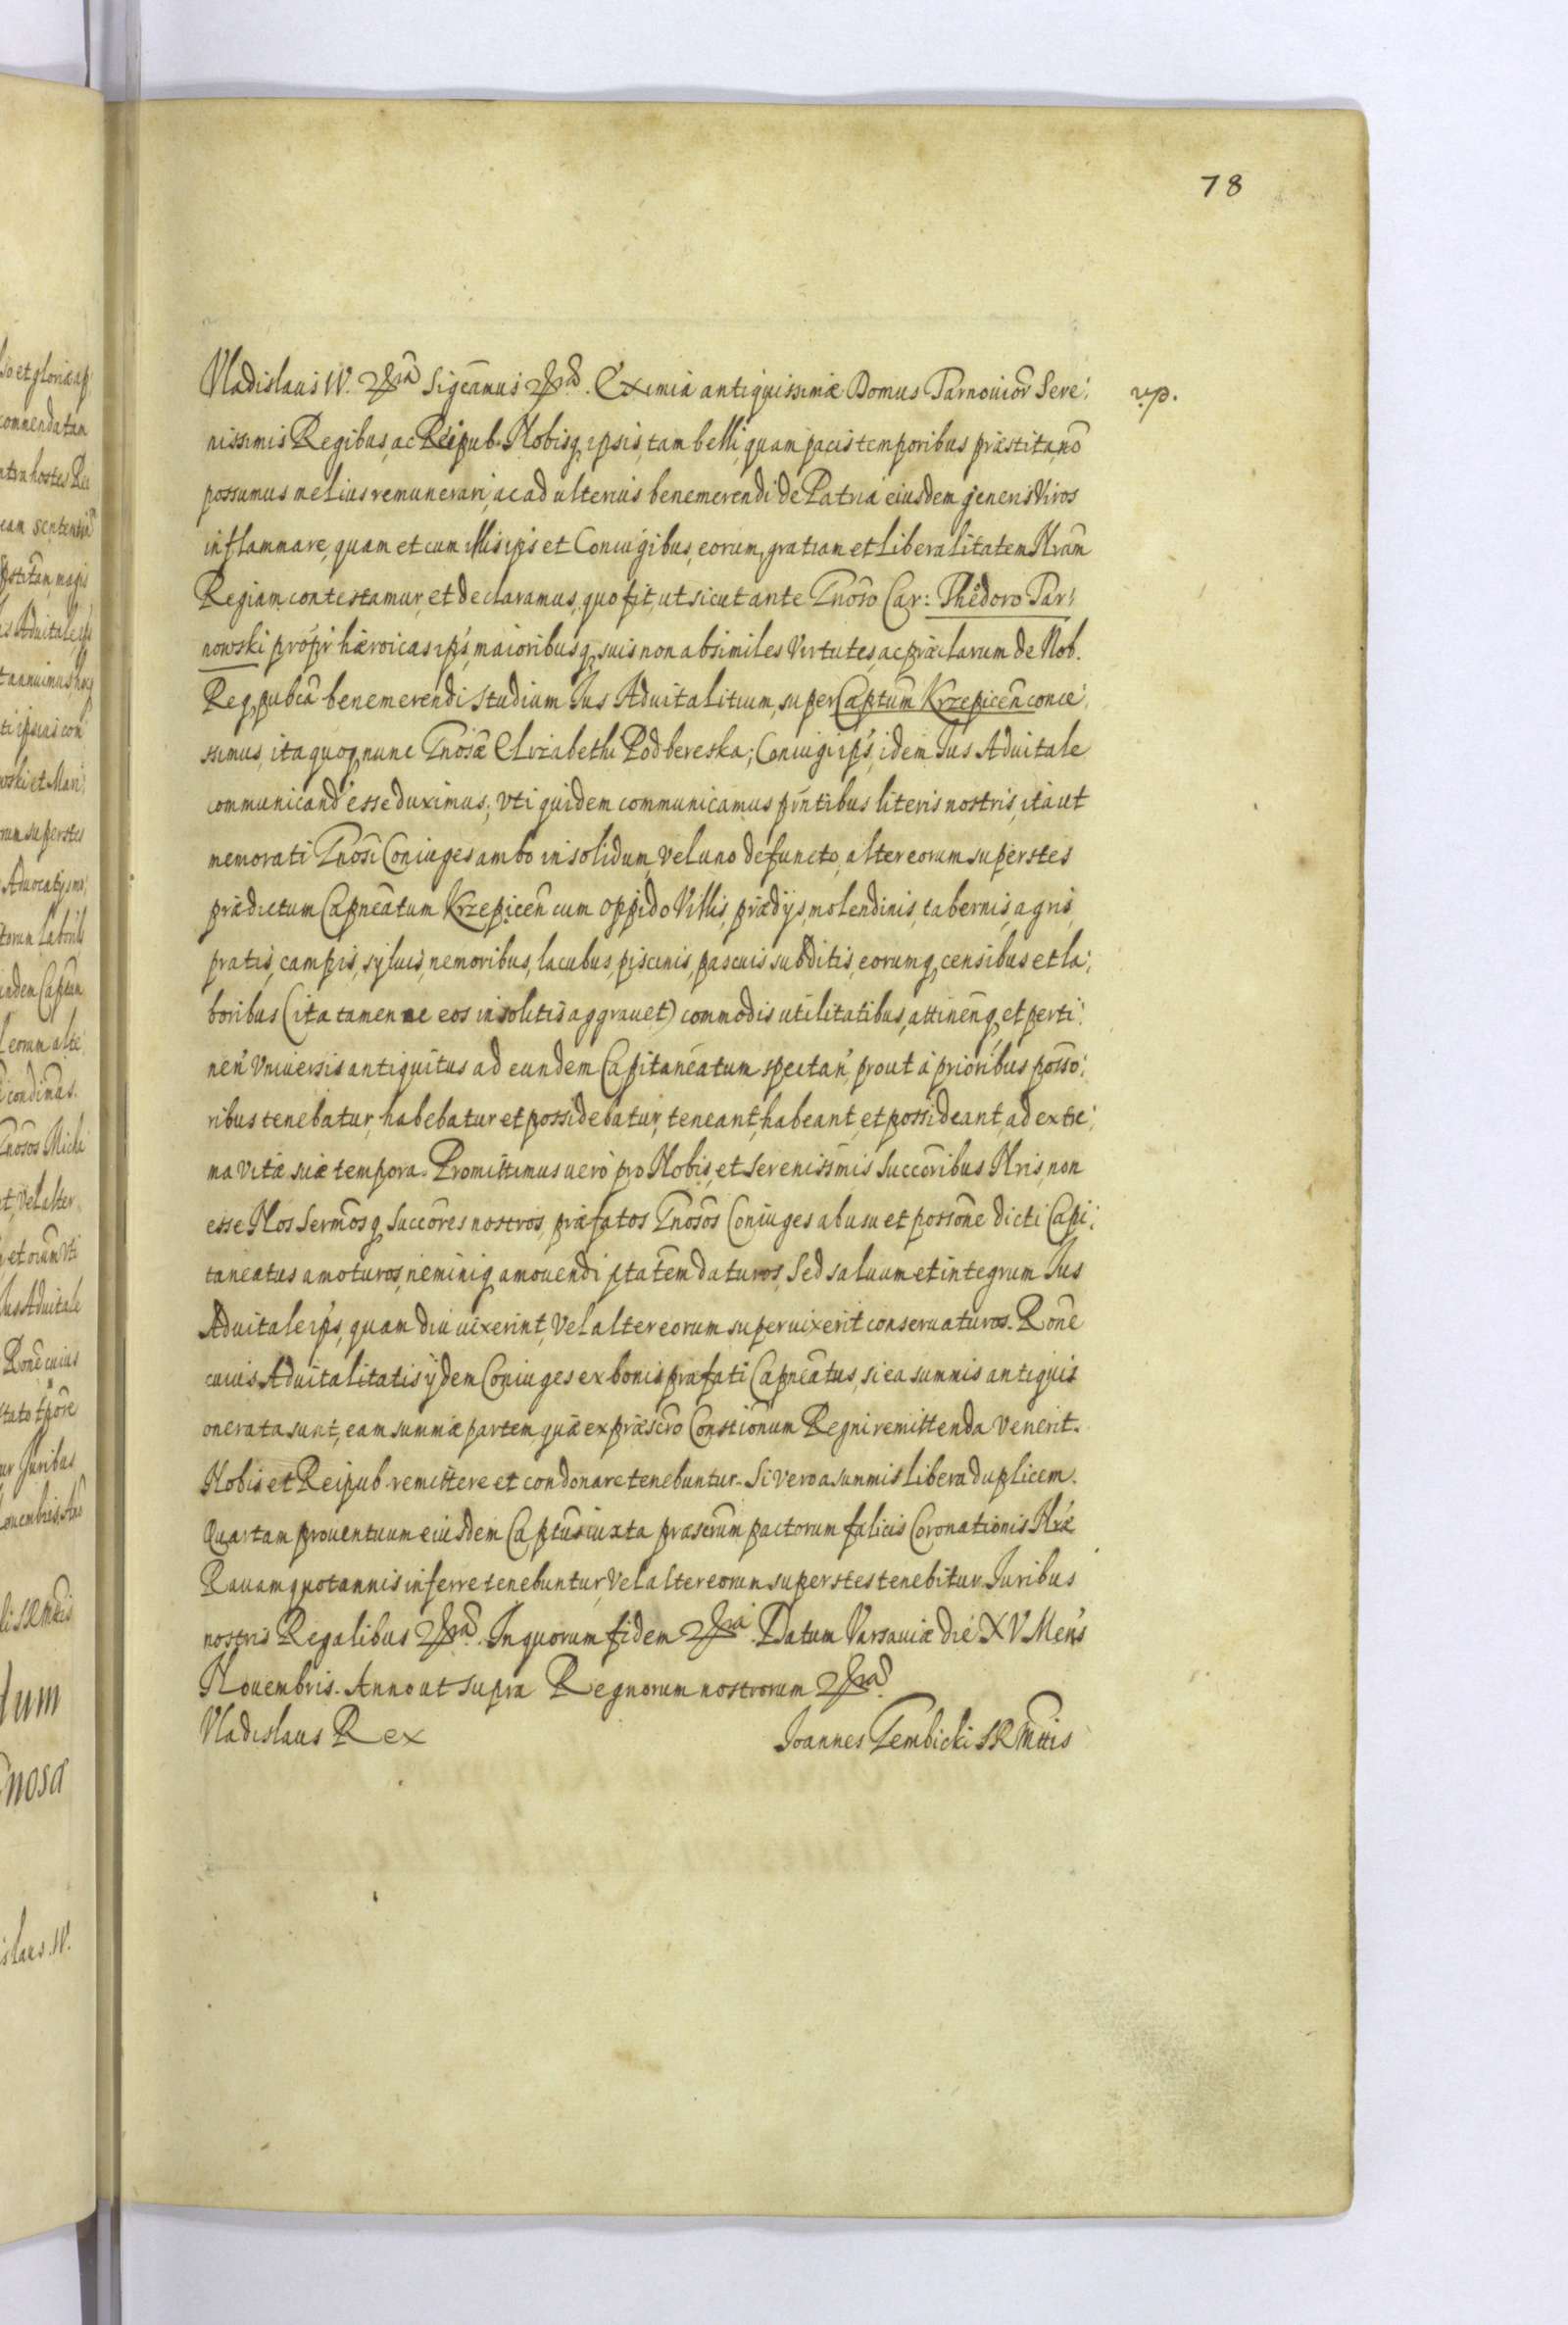 78
Vladislaus IV. &ra Sigcãmus &ra. Eximia antiquissimæ Domus Tarnouior̃ Sere:
nissimis Regibus, ac Reipub. Nobisq ipsis, tam belli, quam pacis temporibus præstita, nõ
possumus melius remunerari, ac ad ulterius benemerendi de Patria eiusdem generis Viros
inflammare, quam et cum illis ipsis et Coniugibus, eorum, gratiam et Liberalitatem Nrãm
Regiam, contestamur, et declaramus, quo fit, ut sicut ante Gnoso Car: Thedoro Tar:
nowski proptr hæroicas ips, maioribusq suis non absimiles Virtutes, ac præclarum de Nob.
Req pubcã benemerendi studium Jus Aduitalitium, super Captum Krzepicen conce:
ssimus, ita quoq nunc Gnosæ Elizabethæ Podbereska; Coniugi ips, idem Jus Aduitale
communicand esse duximus; Vti quidem communicamus pntibus literis nostris, ita ut
memorati Gnosi Coniuges ambo in solidum, vel uno defuncto, alter eorum superstes
prædictum Capneatum Krzepicen cum oppido Villis, prædijs, molendinis, tabernis, agris,
pratis, campis, syluis, nemoribus, lacubus, piscinis, pascuis subditis, eorumq censibus et la:
boribus (ita tamen ne eos insolitis aggrauet) commodis utilitatibus, attinenq, et perti:
nen Vniuersis antiquitus ad eundem Capitaneatum spectan, prout à prioribus posso:
ribus tenebatur, habebatur et possidebatur, teneant, habeant, et possideant, ad extre:
ma vitæ suæ tempora. Promittimus uero pro Nobis, et Serenissmis Succoribus Nris, non
esse Nos Sermosq Succores nostros, præfatos Gnosos Coniuges ab usu et possone dicti Capi:
taneatus amoturos, neminiq amouendi ptatem daturos, Sed saluum et integrum Jus
Aduitale ips, quam diu uixerint, Vel alter eorum superuixerit conseruaturos. Rone
cuius Aduitalitatis ijdem Coniuges ex bonis præfati Capneatus, si ea summis antiquis
onerata sunt, eam summæ partem, quæ ex præscro Constionum Regni remittenda venerit.
Nobis et Reipub. remittere et condonare tenebuntur. Si vero a summis libera duplicem.
Quartam prouentuum eiusdem Captus iuxta præscrum pactorum fælicis Coronationis Nræ
Rauam quotannis inferre tenebuntur, Vel alter eorum superstes tenebitur. Juribus
nostris Regalibus &ra. In quorum fidem &ra. Datum Varsauiæ die XV Mens
Nouembris. Anno ut supra Regnorum nostrorum &ra.
Vladislaus Rex Joannes Gembicki SRMttis